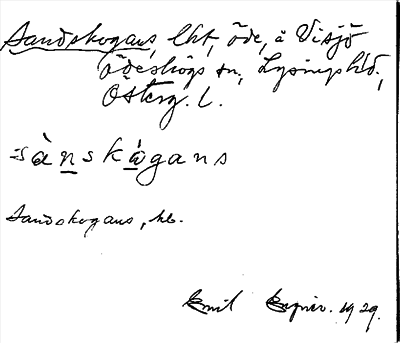 Sandskogans, lht, öde, å Visjö
Ödeshögs sn, Lysings hd.,
Österg. l.
sànskógans
Sandskogans, hb.
Emil 1929.